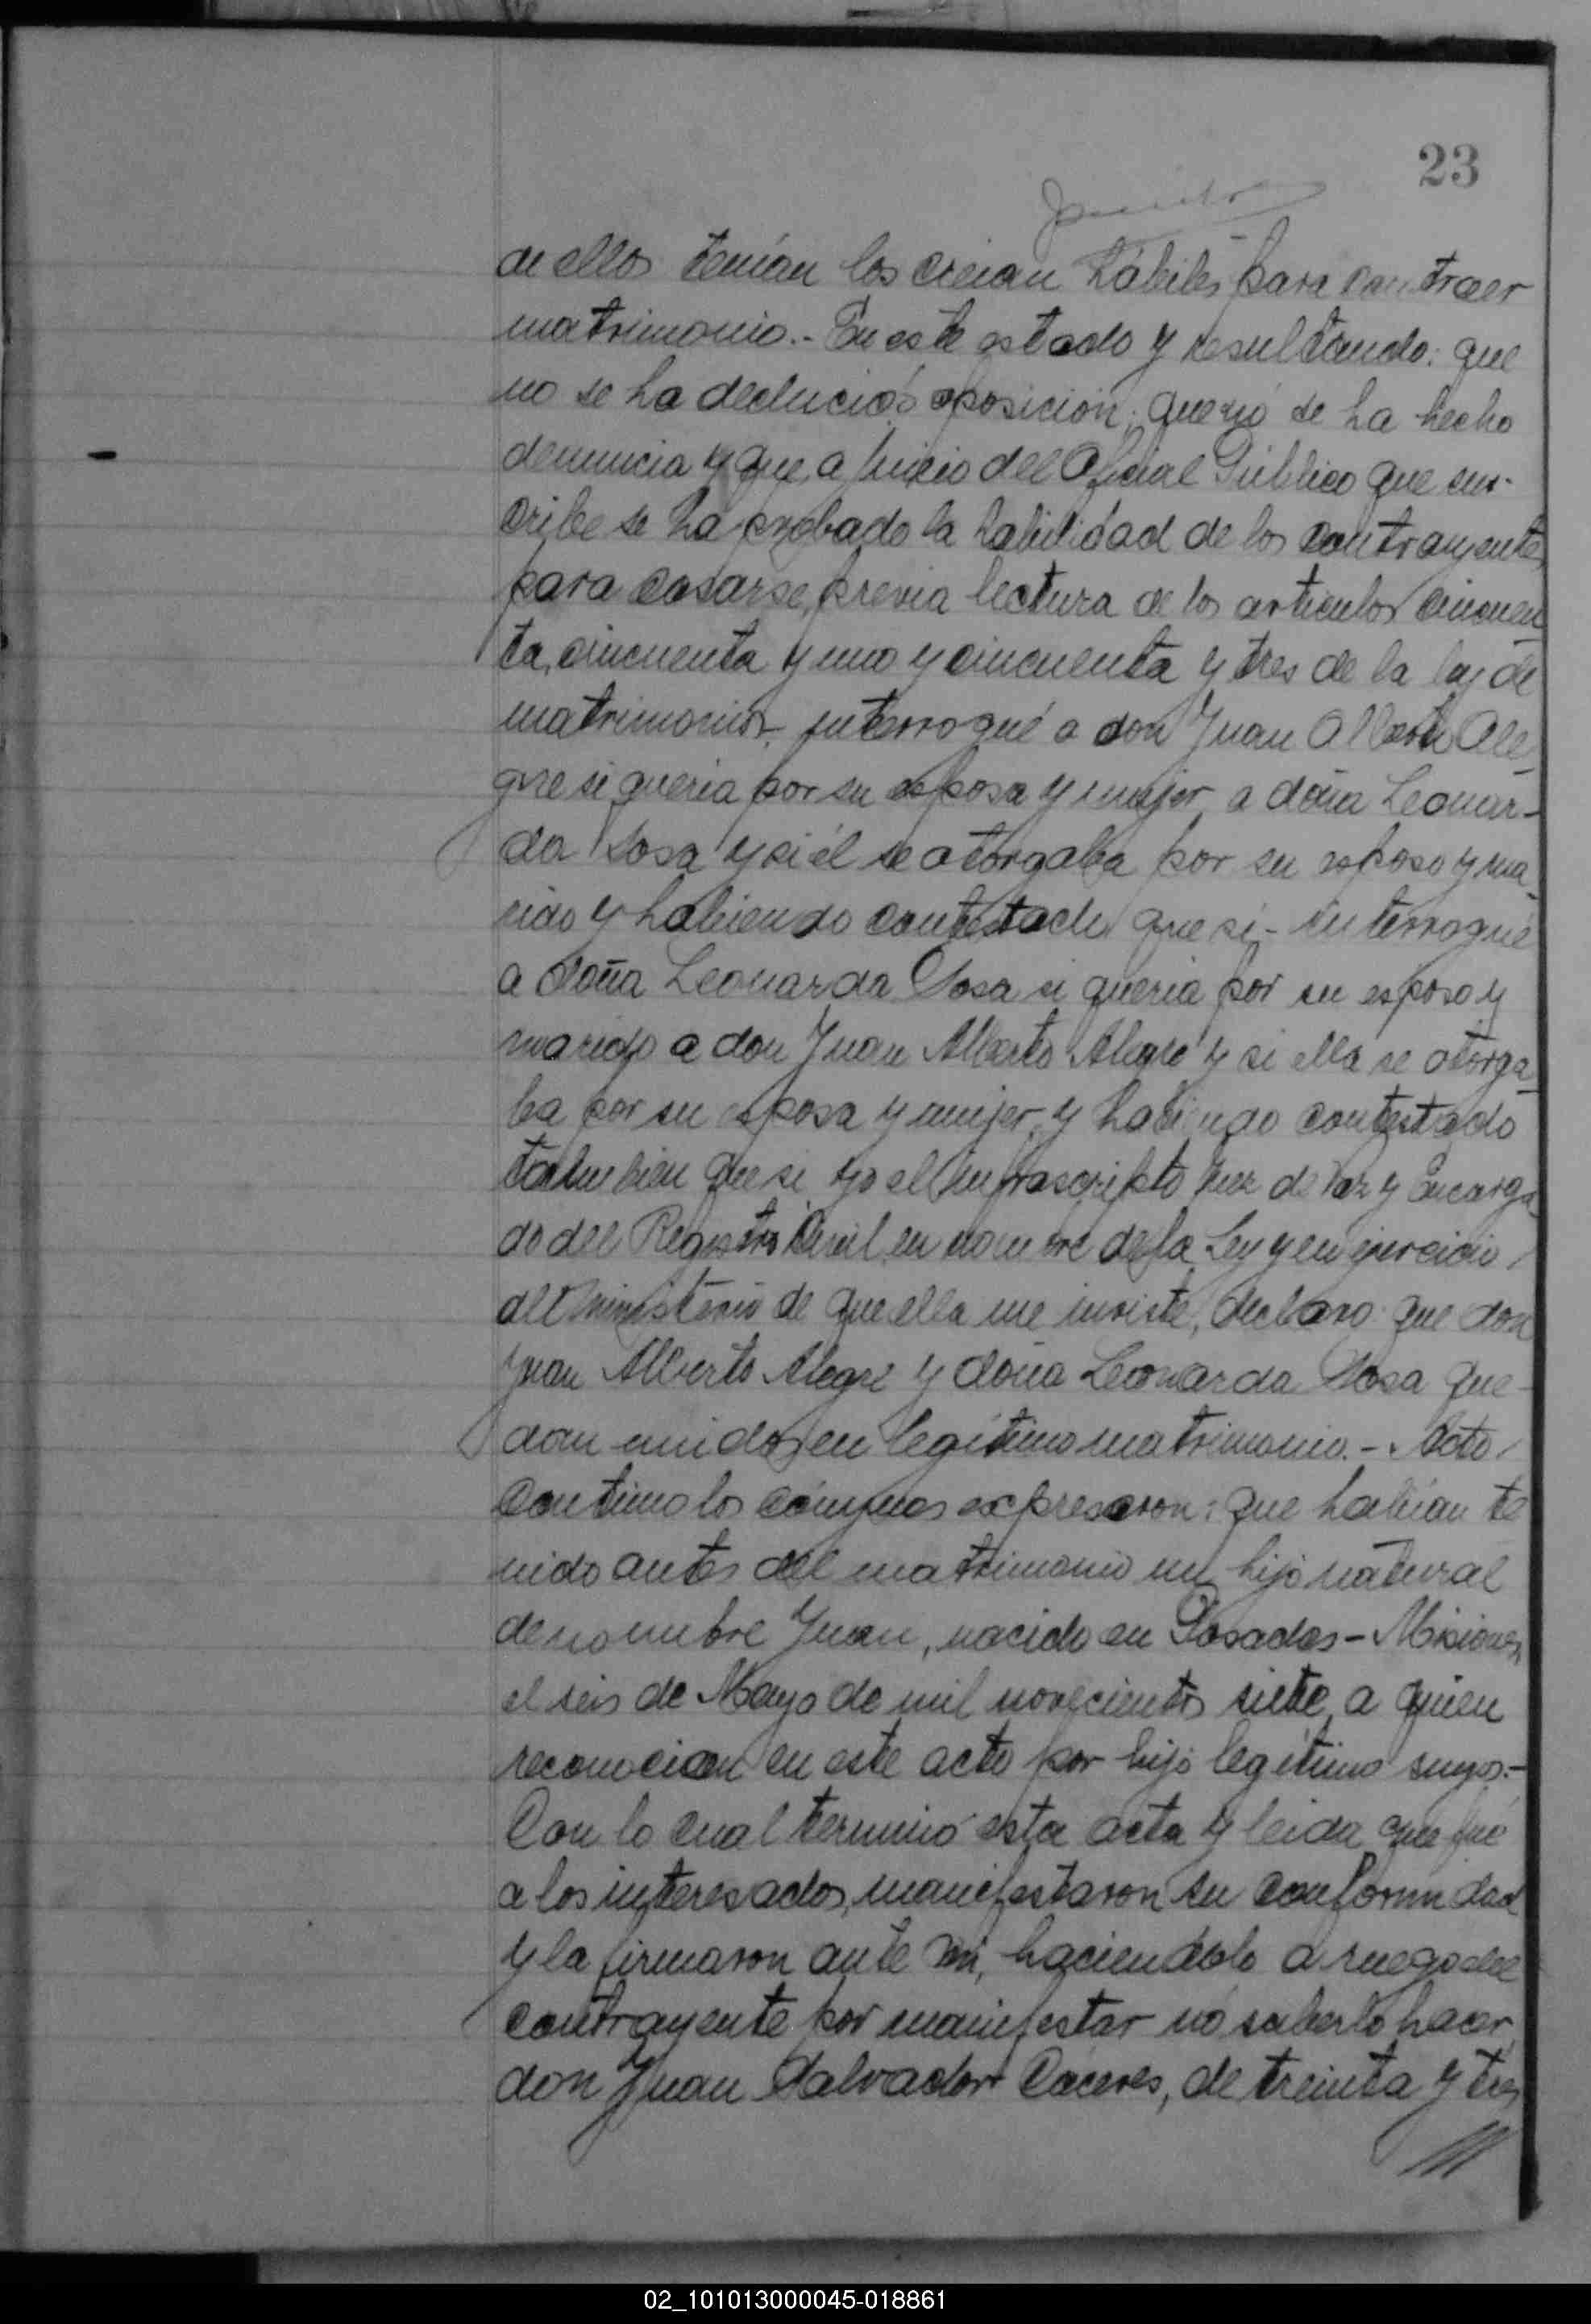 23
de ellos tenían los creian hábiles para contraer
matrimonio.- En este estado y resultando: que
no se ha deducido oposición; que no se ha hecho
denuncia y que, a juicio del Oficial Público que sus-
cribe se ha probado la habilidad de los contrayentes
para casarse, previa lectura de los articulos cincuen
ta, cincuenta y uno y cincuenta y tres de la ley de
matrimonio, interrogué a don Juan Alberto Ale
gre si queria por su esposa y mujer a doña Leonar-
da Sosa y si él se otorgaba por su esposo y ma
rido y habiendo contestado que si- interrogué
a doña Leonarda Sosa si queria por su esposo y
marido a don Juan Alberto Alegre y si ella se otorga
ba por su esposa y mujer, y habiendo contestado
tambien que si yo el infrascripto Juez de Paz y Encarga
do del Registro Civil, en nombre de la Ley y en ejercicio
del ministerio de que ella me inviste, declaro: que don
Juan Alberto Alegre y doña Leonarda Sosa que-
dan unidos en legítimo matrimonio.- Acto
continuo los cónyuges expresaron: que habían te
nido antes del matrimonio un hijo natural
de nombre Juan, nacido en Posadas - Misiones,
el seis de Mayo de mil novecientos siete, a quien
reconocian en este acto por hijo legítimo suyos.-
Con lo cual terminó esta acta y leida que fué
a los interesados, manifestaron su conformidad
y la firmaron ante mi, haciendolo a ruego del
contrayente por manifestar nó saberlo hacer,
don Juan Salvador Caceres, de treinta y tres
02_101013000045-018861